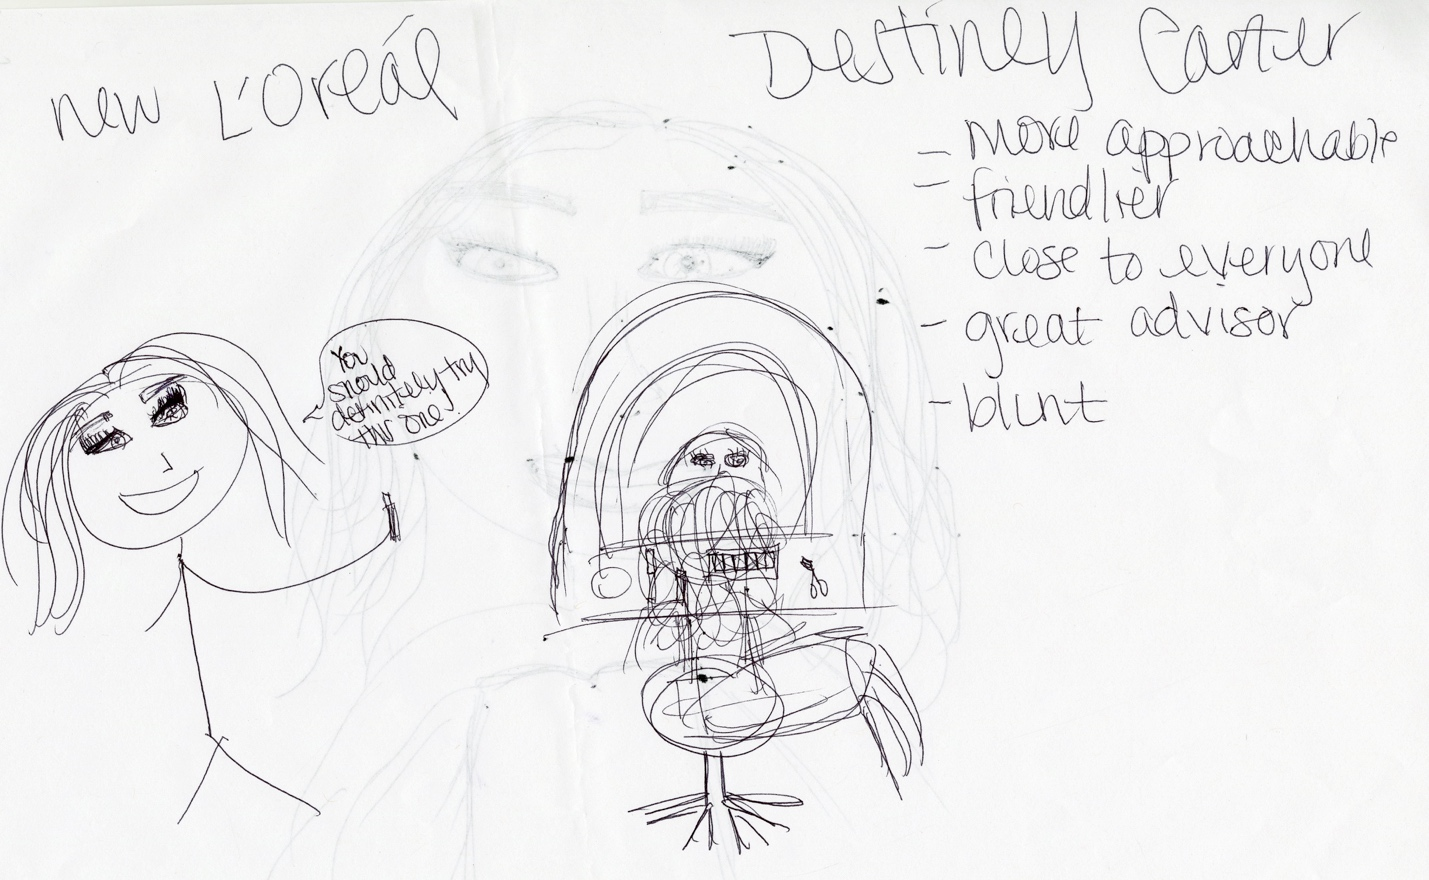 new L'Oreál
Destiney Carter
- more approachable
- friendlier
- close to everyone
- great advisor
- blunt
You
should
definitely try
this one!